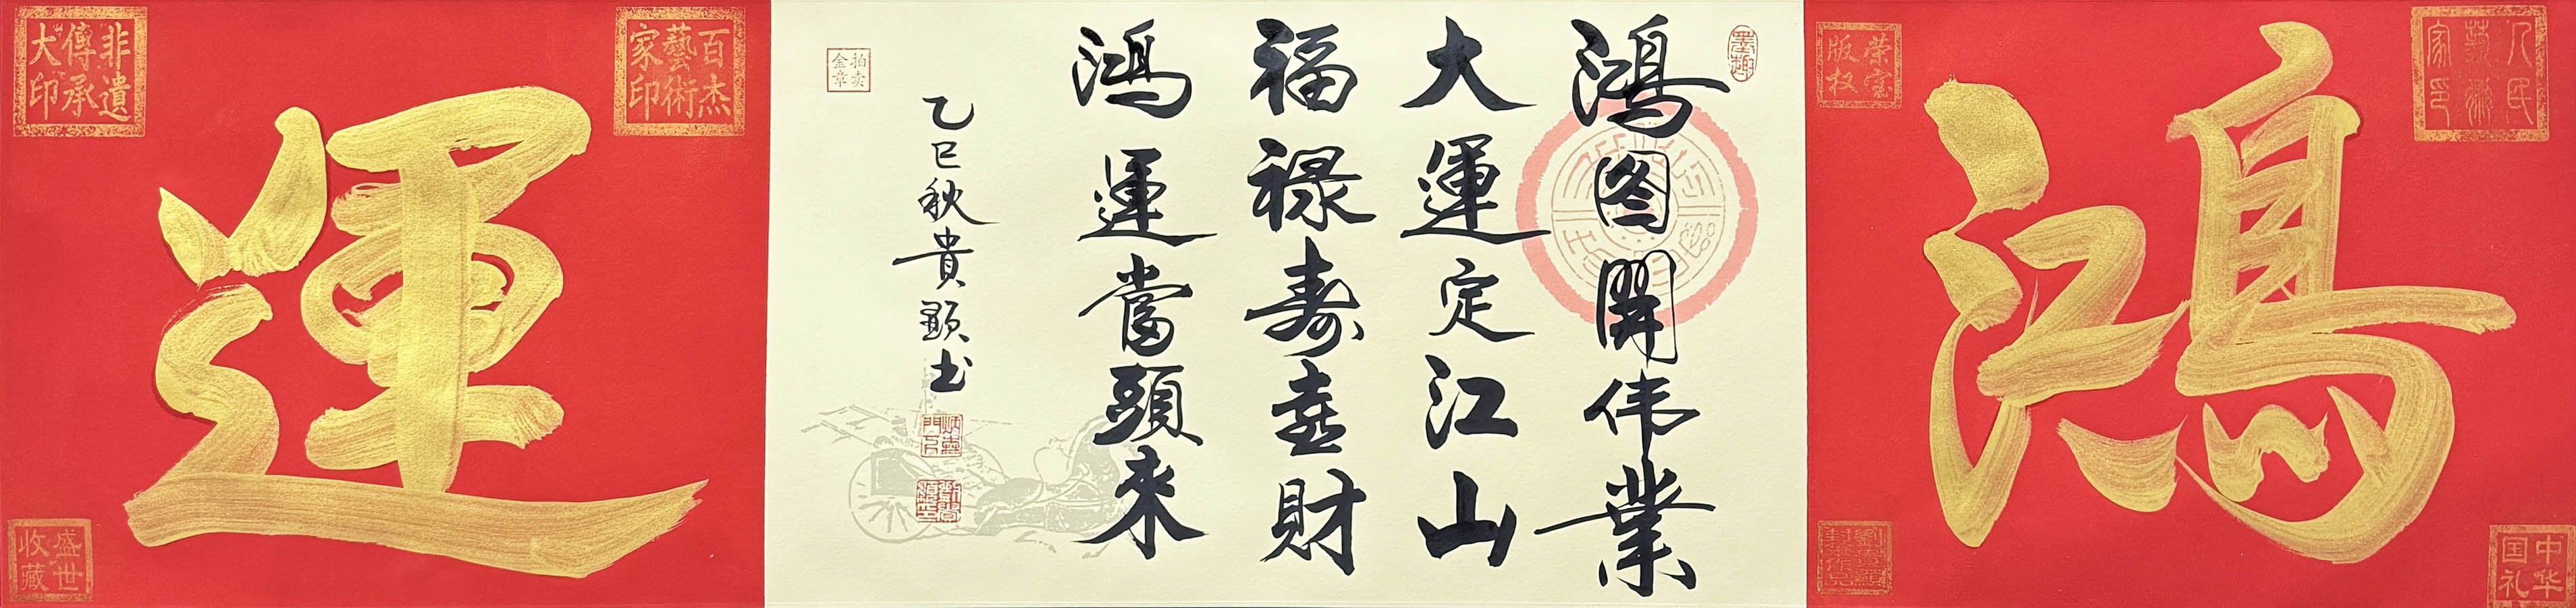 鴻
人民藝術家印
荣宝版权
中华国礼
墨趣
鴻图開伟業
大運定江山
福禄寿喜財
鴻運當頭來
乙巳秋貴顯书
拍卖金章
運
百杰藝術家印
非遺傳承大印
盛世收藏